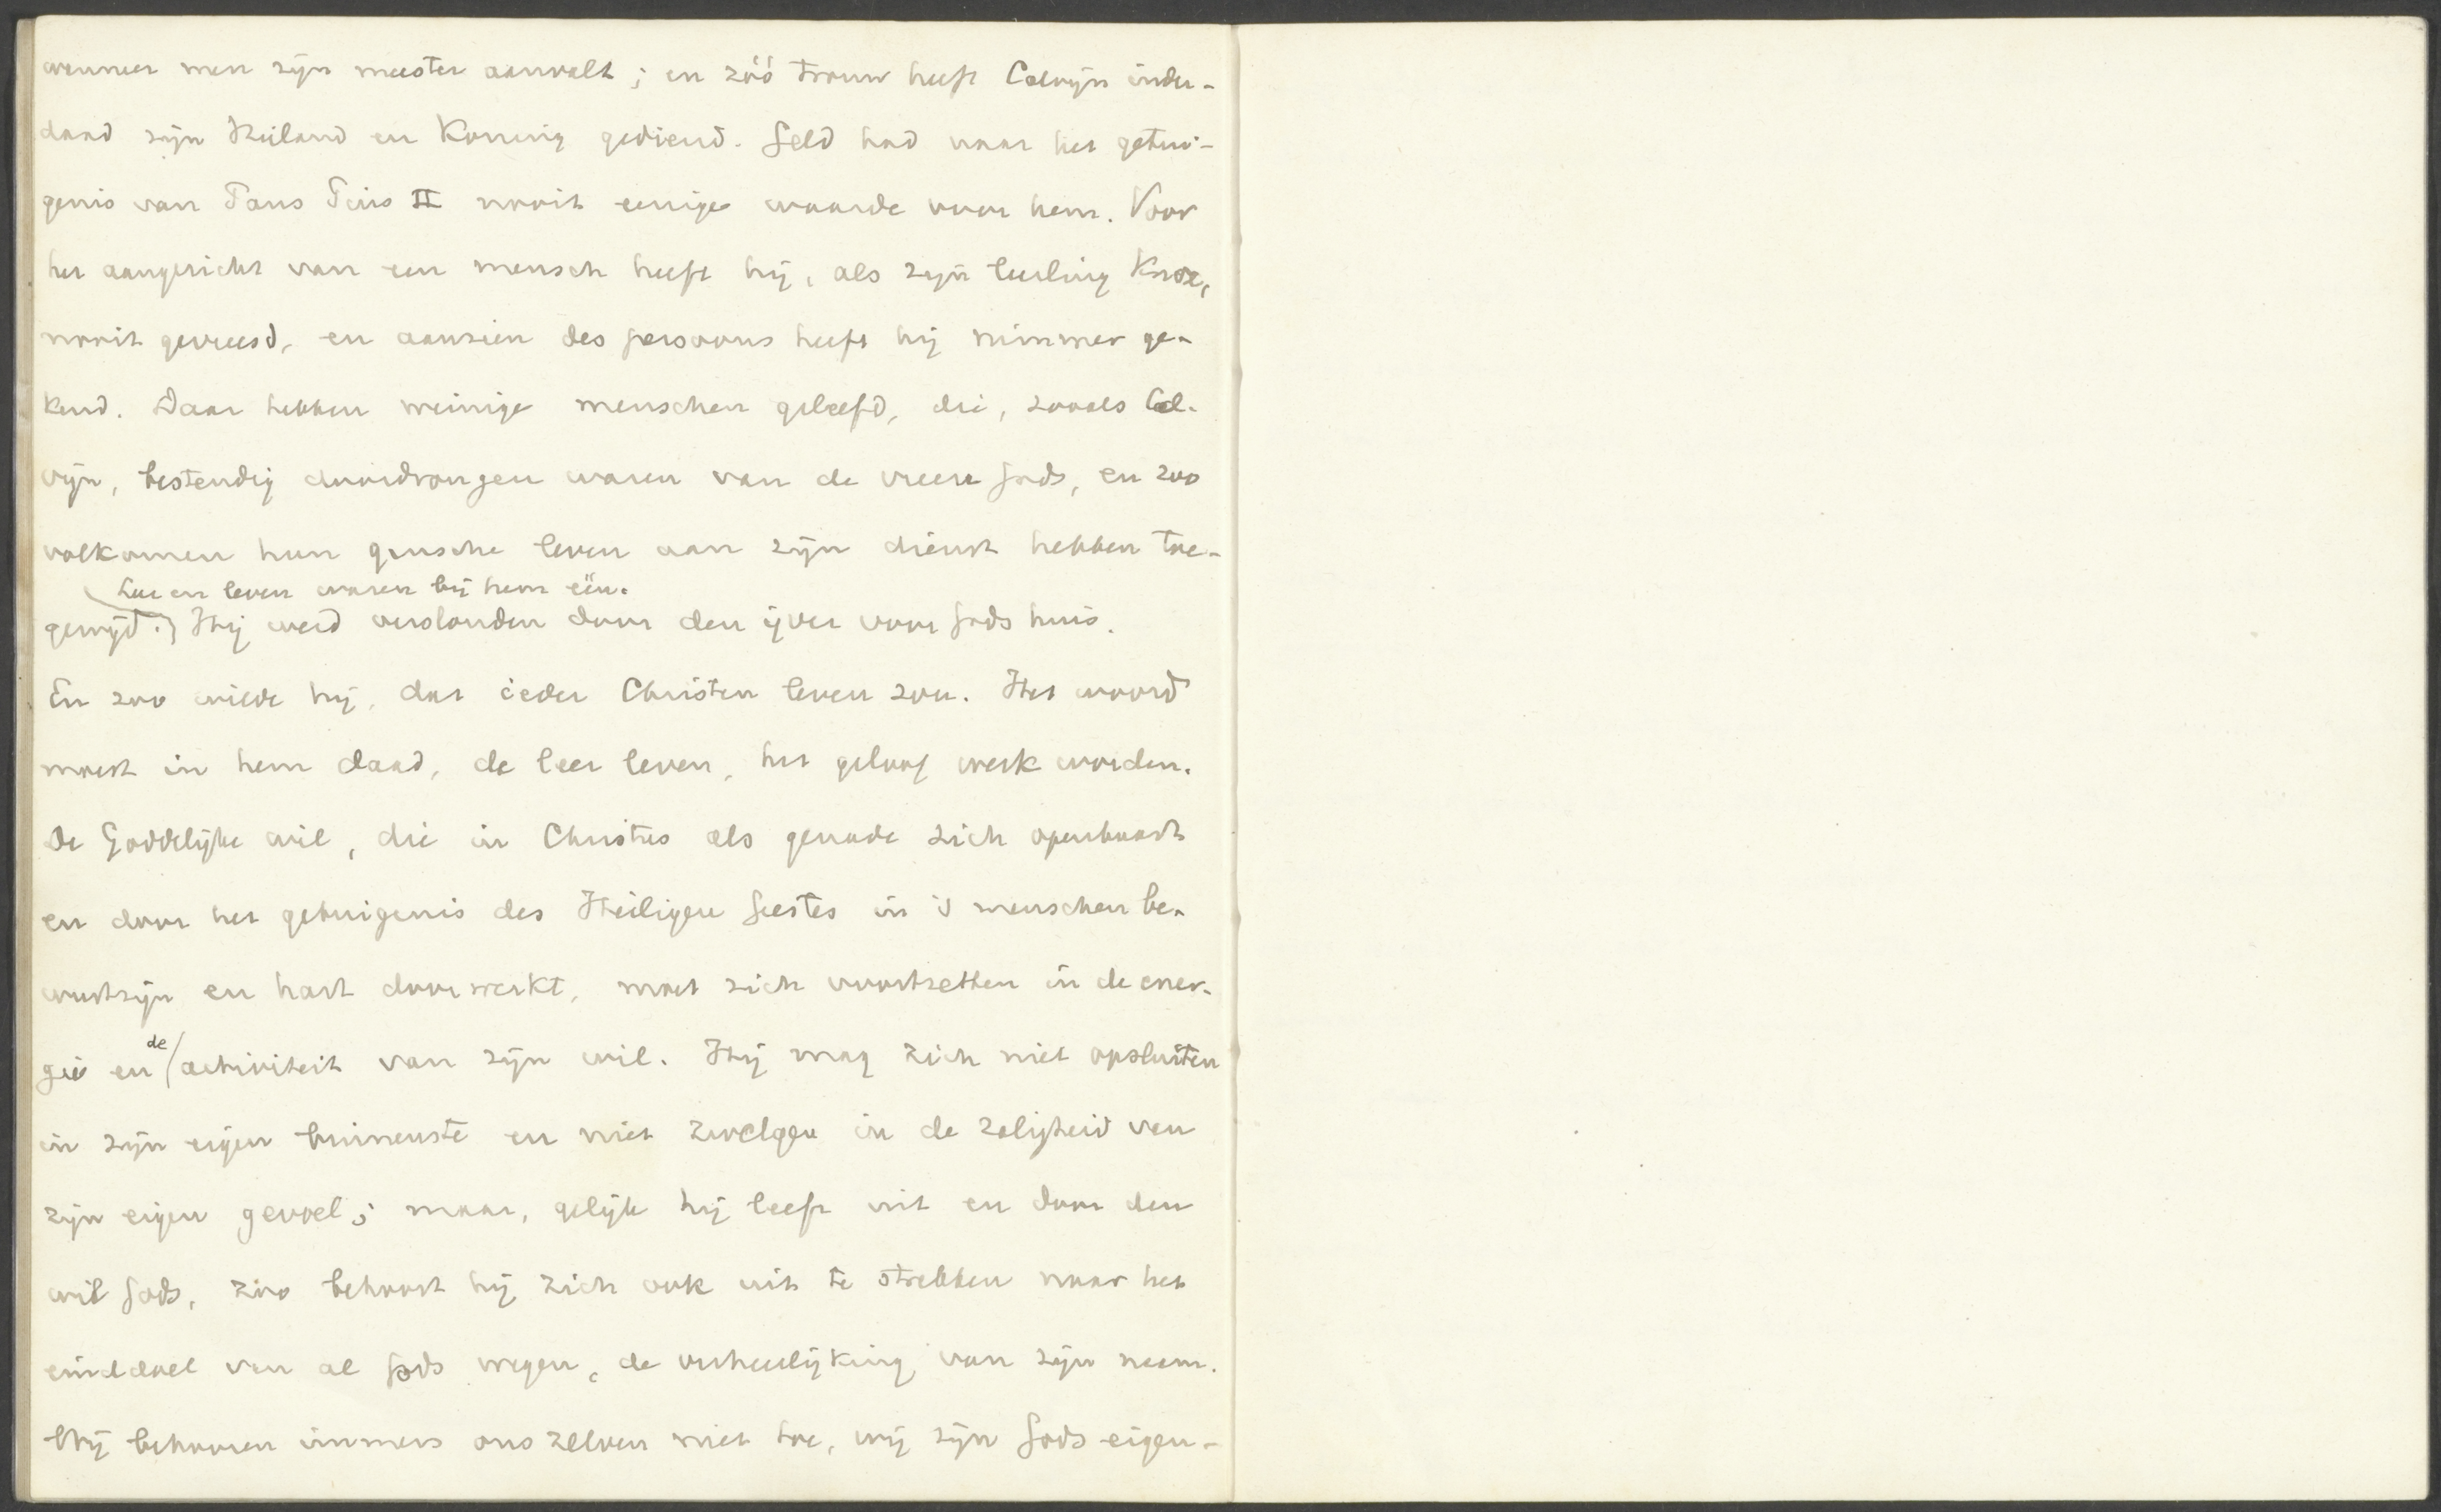 wanneer men zijn meester aanvalt; en zóó trouw heeft Calvijn inder-
daad zijn Heiland en Koning gediend. Geld had naar het getui-
genis van Paus Pius II nooit eenige waarde voor hem. Voor
het aangezicht van een mensch heeft hij, als zijn leerling Knox,
nooit gevreesd, en aanzien des persoons heeft hij nimmer ge-
kend. Daar hebben weinige menschen geleefd, die, zooals Cal-
vijn, bestendig doordrongen waren van de vreeze Gods, en zoo
volkomen hun gansche leven aan zijn dienst hebben toe-
Leer en leven waren bij hem één.
gewijd. Hij werd verslonden door den ijver voor Gods huis.
En zoo wilde hij, dat ieder Christen leven zou. Het woord
moest in hem daad, de leer leven, het geloof werk worden.
De Goddelijke wil, die in Christus als genade zich openbaart
en door het getuigenis des Heiligen Geestes in 's menschen be-
wustzijn en hart doorwerkt, moet zich voortzetten in de ener-
gie en de activiteit van zijn wil. Hij mag zich niet opsluiten
in zijn eigen binnenste en niet zwelgen in de zaligheid van
zijn eigen gevoel; maar, gelijk hij leeft uit en door den
wil Gods, zoo behoort hij zich ook uit te strekken naar het
einddoel van al Gods wegen, de verheerlijking van zijn naam.
Wij behooren immers ons zelven niet toe, wij zijn Gods eigen-